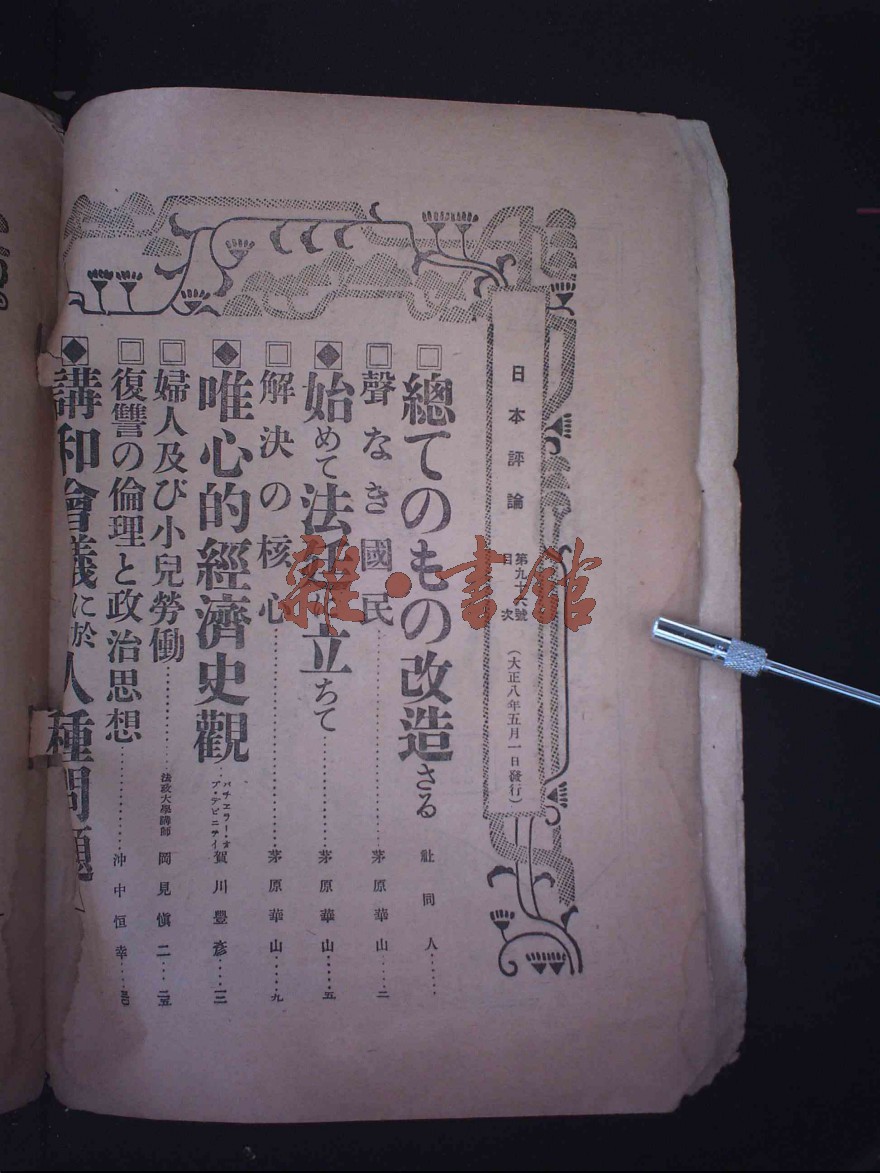 日本評論 第九十六號 目次 (大正八年五月一日發行)
□總てのもの改造さる 社同人……
□聲なき國民……茅原華山……二
◆始めて法廷に立ちて……茅原華山……五
□解決の核心……茅原華山……九
◆唯心的經濟史觀……バチエラー・オブ・デビニテイ 賀川豐彦……三
□婦人及び小兒勞働……法政大學講師 岡見愼二……
□復讐の倫理と政治思想……沖中恒幸……
◆講和會議に於 人種問題
雜·書館